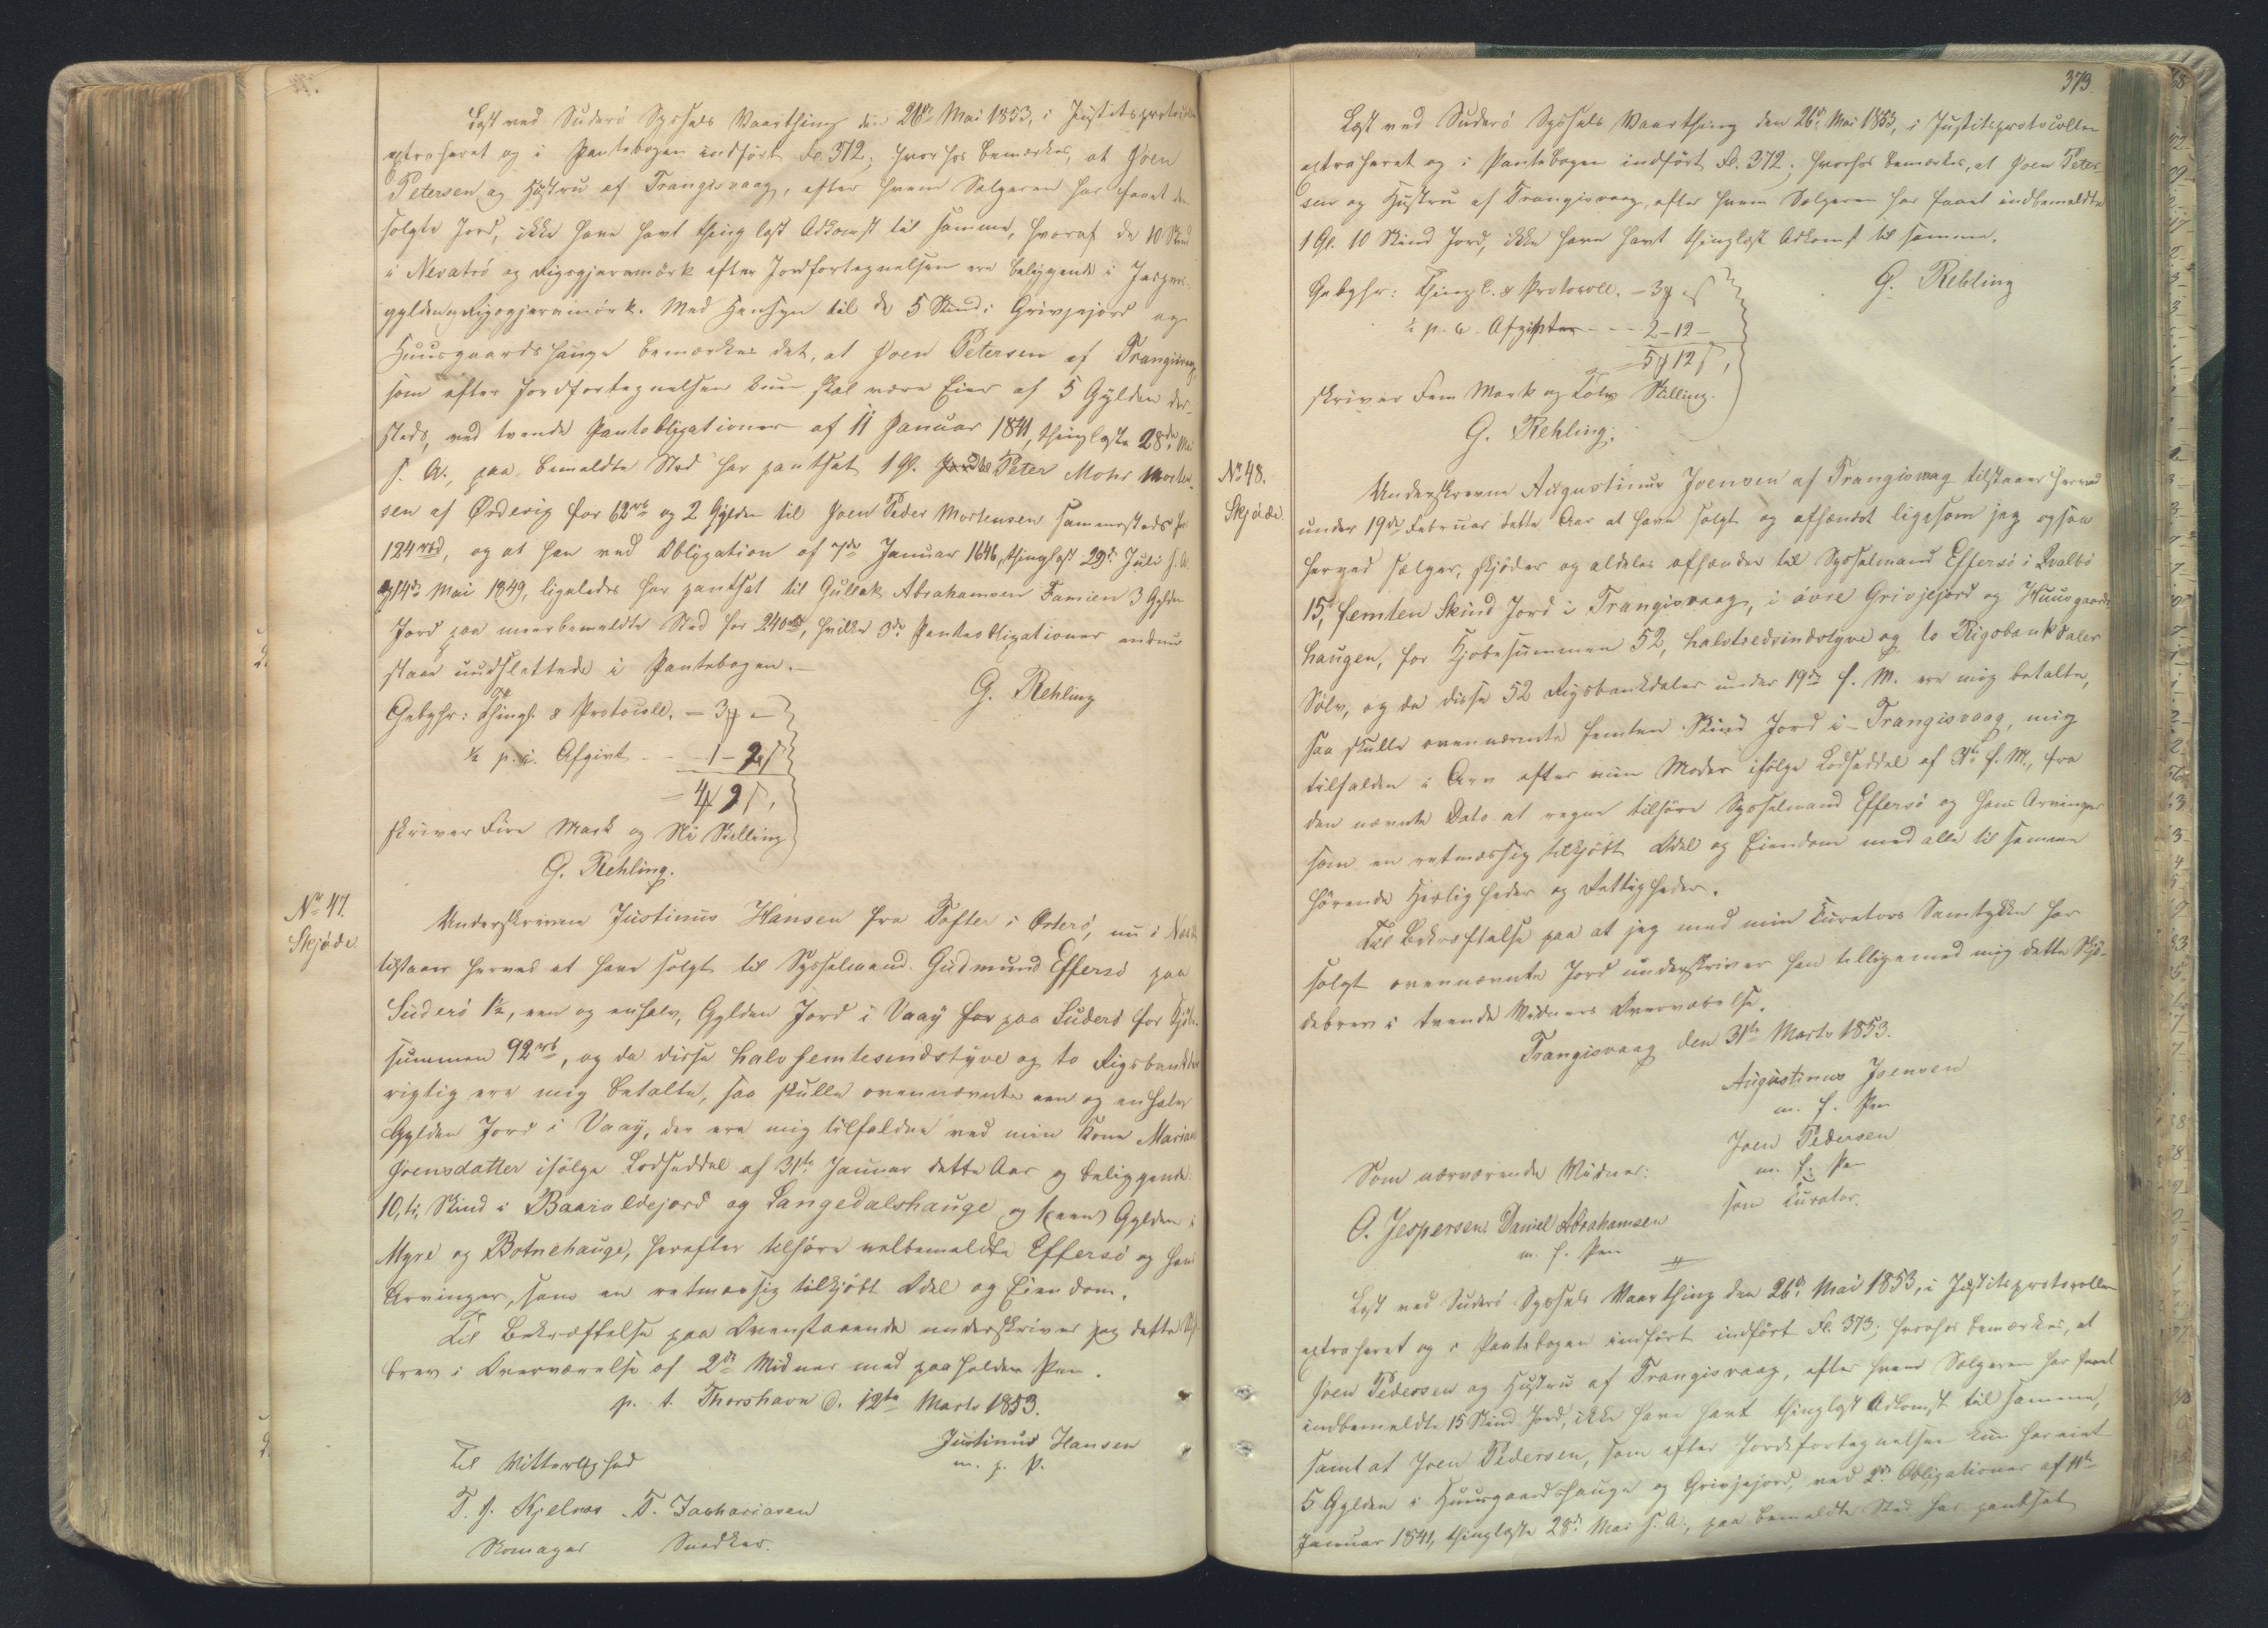 Læst ved Suderö Syssels Vaarthing den 26de Mai 1853, i Justitsprotocollen
extraheret og i Pantebogen indført Fo. 372; hvorhos bemærkes, at Joen
Petersen og Hustru af Trangisvaag, efter hvem Sælgeren har faaet den
solgte Jord, ikke have havt thinglæst Adkomst til samme, hvoraf de 10 Skind
i Nevatrö og Rigsgjeramörk efter Jordfortegnelsen ere beliggende i
gylden og Rigsgjeramörk. Med Hensyn til de 5 Skind i Grivjejord og
Huusgaardshauge bemærkes det, at Joen Petersen af Trangisvaag,
som efter Jordfortegnelsen kun skal være Eier af 5 Gylden der-
steds, ved tvende Pantobligationer af 11 Januar 1841, thinglæste 28de Mai
s. A., paa bemeldte Sted har pantsat 1 Gl. Peter Mohr Morten-
sen af Ørdevig for 62rbd og 2 Gylden til Joen Peder Mortensen sammesteds for
124rbd, og at han ved Obligation af 7de Januar 1646, thinglæst 29de Juli s. A.
og 14de Mai 1849, ligeledes har pantsat til Gullak Abrahamsen Famien 3 Gylden
Jord paa meerbemeldte Sted for 240rbd, hvilke 3de Panteobligationer endnu
staae uudslettede i Pantebogen.
G. Rehling
Gebyhr: Thingl. & Protocoll. - 3 ₰ -
½ p. c. Afgivt - - 1 - 9 ß
= 4 ₰ 9 ß,
skriver Fire Mark og Ni Skilling
G. Rehling.
No 47.
Skjøde.
Underskrevne Justinus Hansen fra Tofter i Østerö, nu i
tilstaaer herved at have solgt til Sysselmand Gudmund Effersö paa
Suderö 1½, een og enhalv, Gylden Jord i Vaag for paa Suderö for Kjöbe-
summen 92rbd, og da disse halvfemtesindstyve og to Rigsbankdaler
rigtig ere mig betalte, saa skulle ovennævnte een og enhalv
Gylden Jord i Vaag, der ere mig tilfaldne ved min Kone Mariane
Joensdatter ifølge Lodseddel af 31te Januar dette Aar og beliggende:
10, ti, Skind i Baaraldejord og Langedalshauge og 1 (een) Gylden i
Myre og Botnehauge, herefter tilhøre velbemeldte Effersö og hans
Arvinger, som en retmæssig tilkjøbt Odel og Eiendom.
Til Bekræftelse paa Ovenstaaende underskriver jeg dette Skjøde-
brev i Overværelse af 2de Vidner med paaholden Pen.
p. t. Thorshavn d. 12te Marts 1853.
Justinus Hansen
m. p. P.
Til Vitterlighed
T. J. Kjelnæs T. Zachariasen
Skomager Snedker.
373.
Læst ved Suderö Syssels Vaarthing den 26de Mai 1853, i Justitsprotocollen
extraheret og i Pantebogen indført Fo. 372; hvorhos bemærkes, at Joen Peter-
sen og Hustru af Trangisvaag, efter hvem Sælgeren har faaet indbemeldte
1 Gl. 10 Skind Jord, ikke have havt thinglæst Adkomst til samme.
G. Rehling
Gebyhr: Thingl. & Protocoll. - 3 ₰ - ß
½ p. c. Afgifter - - 2 - 12 -
= 5 ₰ 12 ß,
skriver Fem Mark og Tolv Skilling.
G. Rehling.
No 48.
Skjøde.
Underskrevne Augustinus Joensen af Trangisvaag tilstaaer herved
under 19de Februar dette Aar at have solgt og afhændet ligesom jeg ogsaa
herved sælger, skjöder og aldeles afhænder til Sysselmand Effersö i Qvalbö
15, femten Skind Jord i Trangisvaag, i övre Grivjejord og Huusgaards-
haugen, for Kjöbesummen 52, halvtredsindstyve og to Rigsbankdaler
Sölv, og da disse 52 Rigsbankdaler under 19de f. M. ere mig betalte,
saa skulle ovennævnte femten Skind Jord i Trangisvaag, mig
tilfalden i Arv efter min Moder ifölge Lodseddel af 3te f. M., fra
den nævnte Dato at regne tilhöre Sysselmand Effersö og hans Arvinger
som en retmæssig tilkjöbt Odel og Eiendom med alle til samme
hörende Herligheder og Rettigheder.
Til Bekræftelse paa at jeg med min Curators Samtykke har
solgt ovennævnte Jord underskriver han tilligemed mig dette Skjö-
debrev i tvende Vidners Overværelse.
Trangisvaag den 31te Marts 1853.
Augustinus Joensen
m. f. Pen
Joen Pedersen
m. f. Pen
som Curator.
Som nærværende Vidner:
O. Jespersen. Daniel Abrahamsen
m. f. Pen
Læst ved Suderö Syssels Vaarthing den 26de Mai 1853, i Justitsprotocollen
extraheret og i Pantebogen indført indført Fo. 373; hvorhos bemærkes, at
Joen Pedersen og Hustru af Trangisvaag, efter hvem Sælgeren har faaet
indbemeldte 15 Skind Jord, ikke have havt thinglæst Adkomst til samme,
samt at Joen Pedersen, som efter Jordefortegnelsen kun har eiet
5 Gylden i Huusgaardshauge og Grivjejord, ved 2de Obligationer af 11te
Januar 1841, thinglæste 28de Mai s. A., paa bemeldte Sted har pantsat